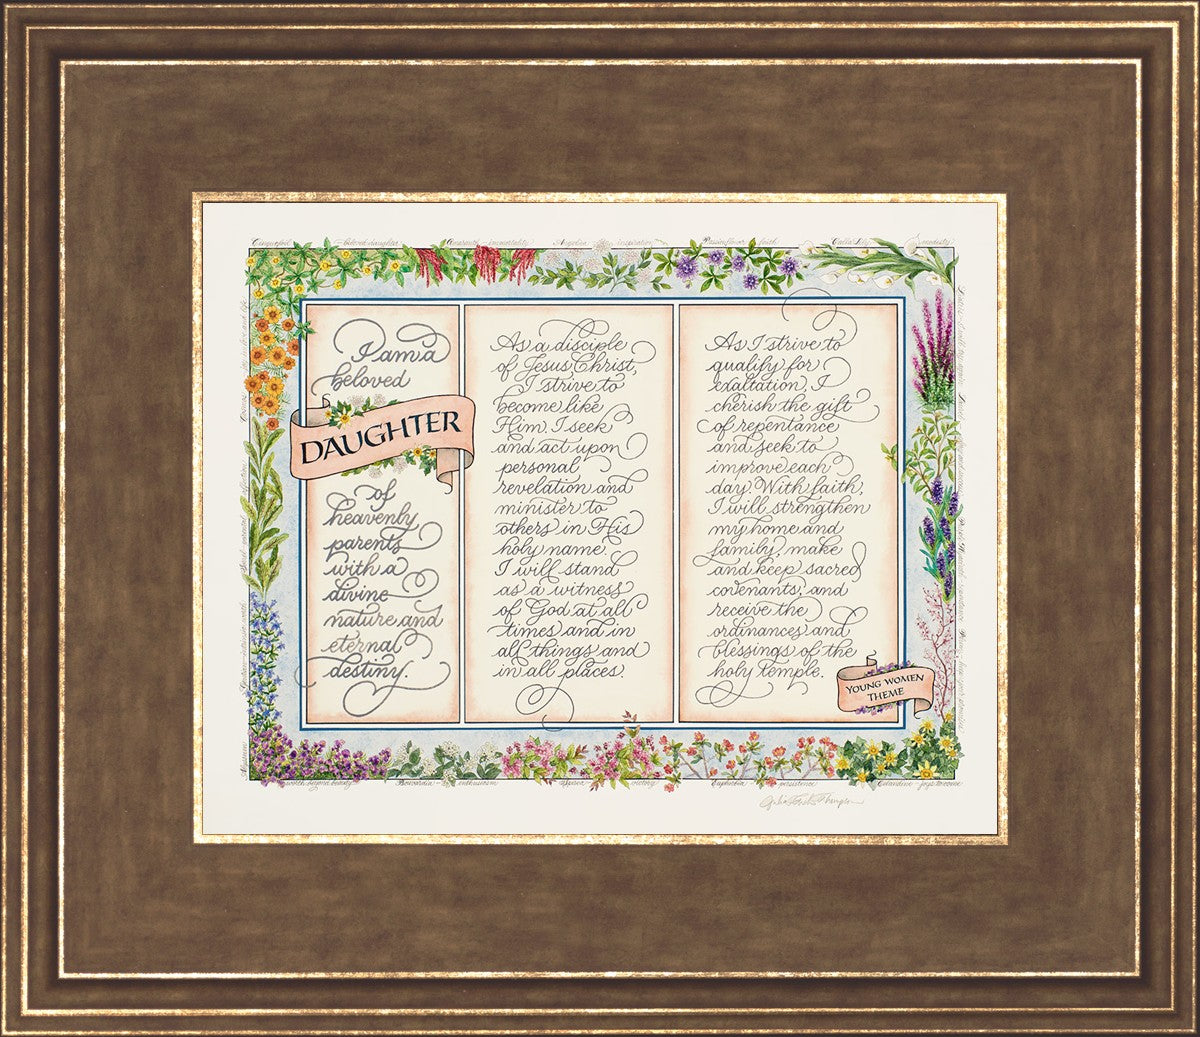 Cinquefoil beloved daughter Amaranth immortality Angelica inspiration Calla Lily modesty
I am a
beloved
DAUGHTER
of
heavenly
parents
with a
divine
nature and
eternal
destiny.
As a disciple
of Jesus Christ,
I strive to
become like
Him. I seek
and act upon
personal
revelation and
minister to
others in His
holy name.
I will stand
as a witness
of God at all
times and in
all things and
in all places.
As I strive to
qualify for
exaltation, I
cherish the gift
of repentance
and seek to
improve each
day. With faith,
I will strengthen
my home and
family, make
and keep sacred
covenants, and
receive the
ordinances and
blessings of the
holy temple.
YOUNG WOMEN
THEME
worth beyond beauty Bouvardia enthusiasm victory Euphorbia persistence Celandine joys to come